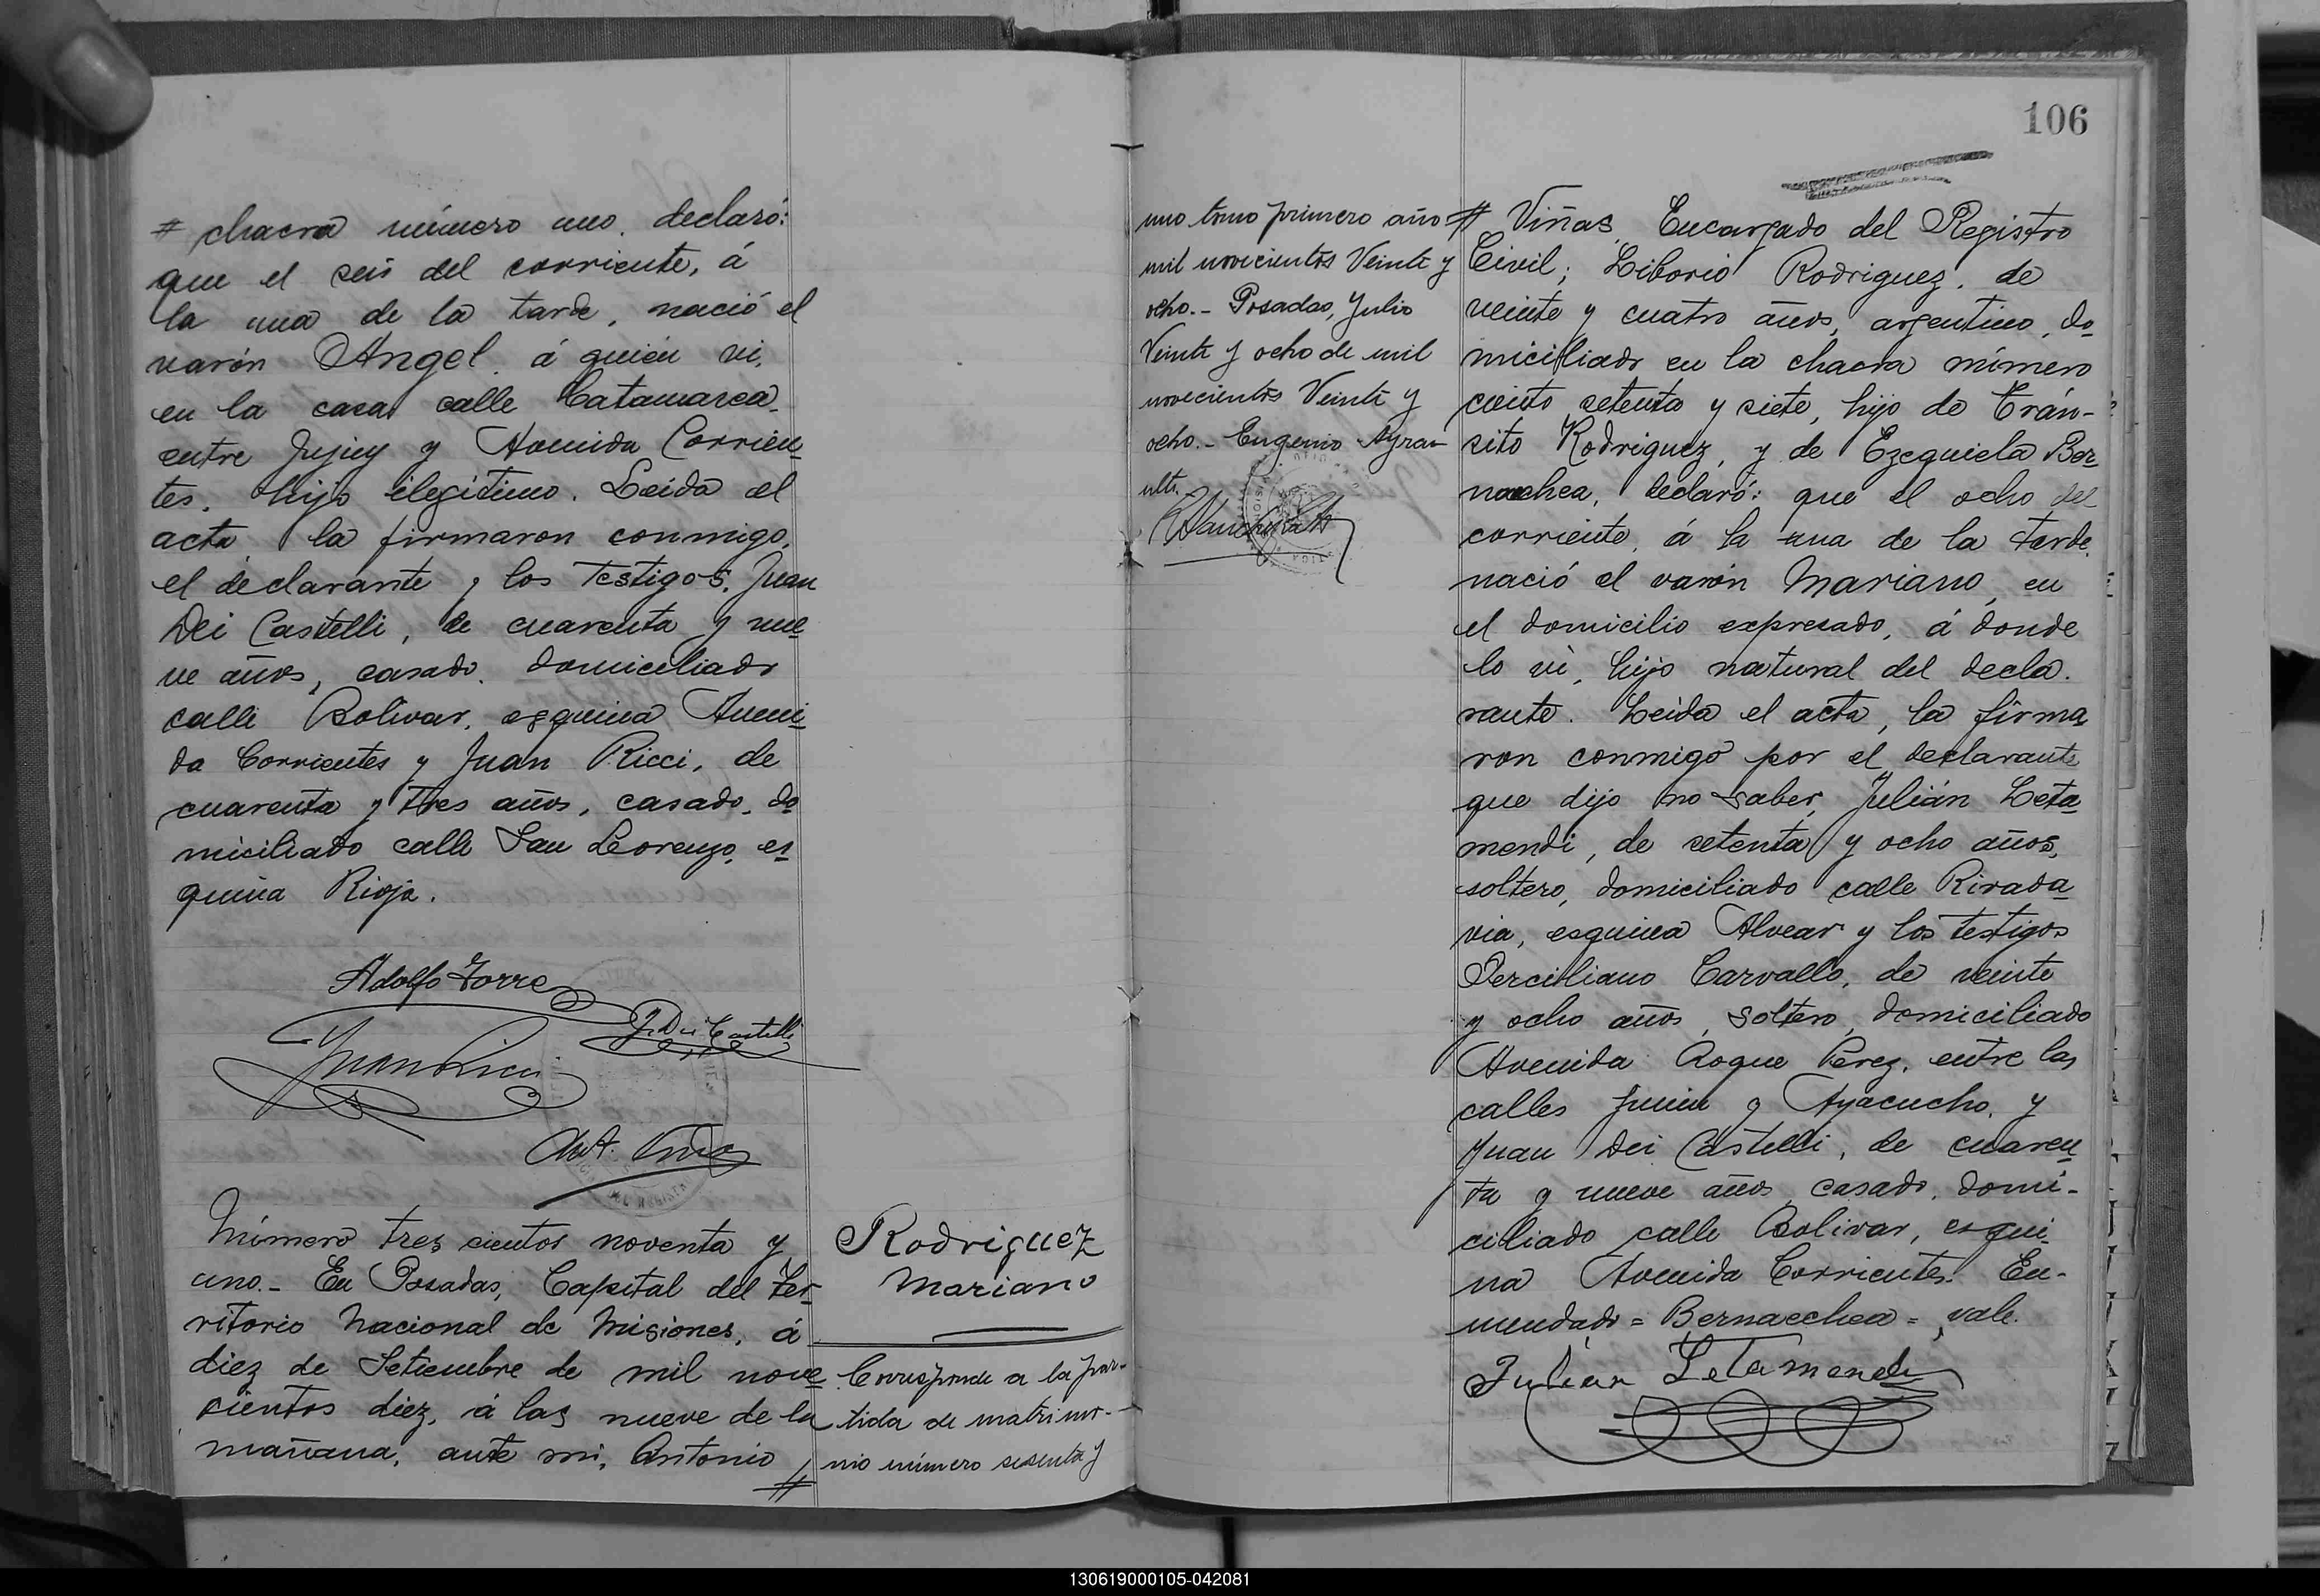 # chacra número uno, declaró:
que el seis del corriente, á
la una de la tarde, nació el
varón Angel, á quién vi,
en la casa calle Catamarca,
entre Jujuy y Avenida Corrien
tes, hijo ilegítimo. Leida el
acta, la firmaron conmigo,
el declarante y los testigos, Juan
Dei Castelli, de cuarenta y nue
ve años, casado, domiciliado
calle Bolivar, esquina Aveni
da Corrientes y Juan Ricci, de
cuarenta y tres años, casado, do
miciliado calle San Lorenzo, es
quina Rioja.
Adolfo Torres
J. Dei Castelli
Juan Ricci
Ant. Viñas
Número tres cientos noventa y
uno.- En Posadas, Capital del Ter
ritorio Nacional de Misiones, á
diez de Setiembre de mil nove
cientos diez, á las nueve de la
mañana, ante mi, Antonio #
Rodriguez
Mariano
Corresponde a la par-
tida de matrimo-
nio número sesenta y
uno tomo primero año
mil novecientos Veinte y
ocho.- Posadas, Julio
Veinte y ocho de mil
novecientos Veinte y
ocho.- Eugenio Ayrau
lt.
106
# Viñas, Encargado del Registro
Civil; Liborio Rodriguez, de
veinte y cuatro años, argentino, do
miciliado en la chacra número
ciento setenta y siete, hijo de Trán-
sito Rodriguez, y de Ezequiela Ber
nachea, declaró: que el ocho del
corriente, á la una de la tarde,
nació el varón Mariano, en
el domicilio expresado, á donde
lo vi, hijo natural del decla.
rante. Leida el acta, la firma
ron conmigo por el declarante
que dijo no saber, Julián Leta
mendi, de setenta y ocho años,
soltero, domiciliado calle Rivada
via, esquina Alvear y los testigos
Perciliano Carvallo, de veinte
y ocho años, soltero, domiciliado
Avenida Roque Perez, entre las
calles Junin y Ayacucho, y
Juan Dei Castelli, de cuaren
ta y nueve años, casado, domi-
ciliado calle Bolivar, esqui
na Avenida Corrientes. En-
mendado = Bernacchea = vale.
Julian Letamendi
130619000105-042081